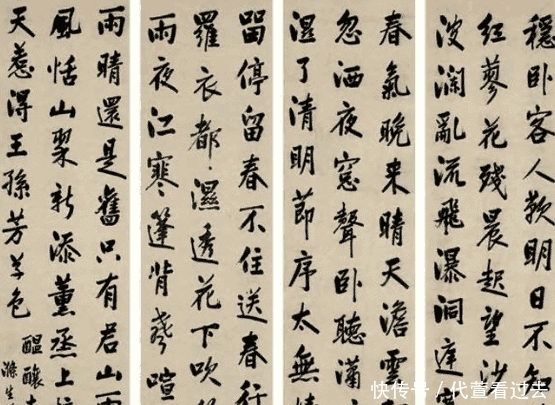 穩卧客人欺明日不知
紅蓼花殘晨起望沙
波瀾亂流飛瀑洞庭
春氣晚來晴天澹雲
忽洒夜窓聲卧聽瀟
濕了清明節序太無情
留停留春不住送春行
羅衣都濕透花下吹
雨夜江寒篷背喧
雨晴還是舊只有君山
風恬山翠新添薰蒸上
天惹得王孫芳草色
醞釀
滌生
快传号／代萱看过去